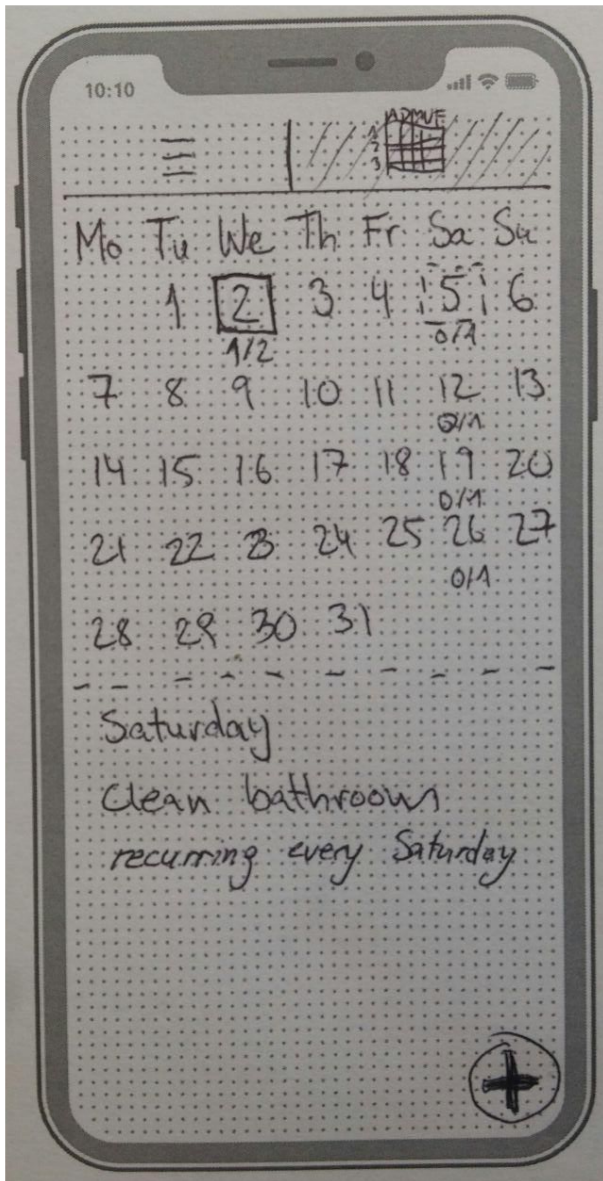 10:10
Mo Tu We Th Fr Sa Su
1 2 3 4 5 6
1/2 0/1
7 8 9 10 11 12 13
0/1
14 15 16 17 18 19 20
0/1
21 22 23 24 25 26 27
0/1
28 29 30 31
Saturday
Clean bathroom
recurring every Saturday
+